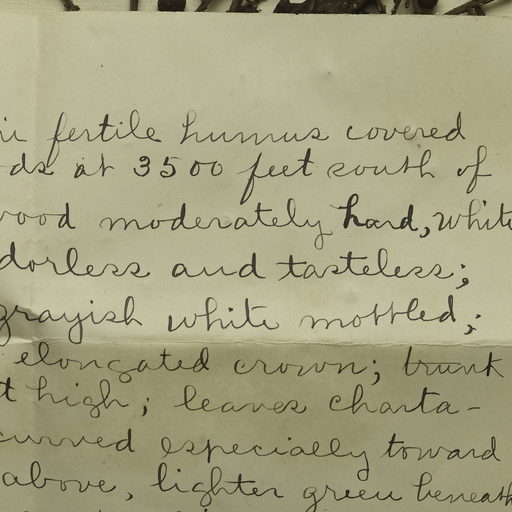 in fertile humus covered
ods at 3500 feet south of
wood moderately hard, white
dorless and tasteless;
grayish white mottled;
elongated crown; trunk
t high; leaves charta-
curved especially toward
above, lighter green beneath